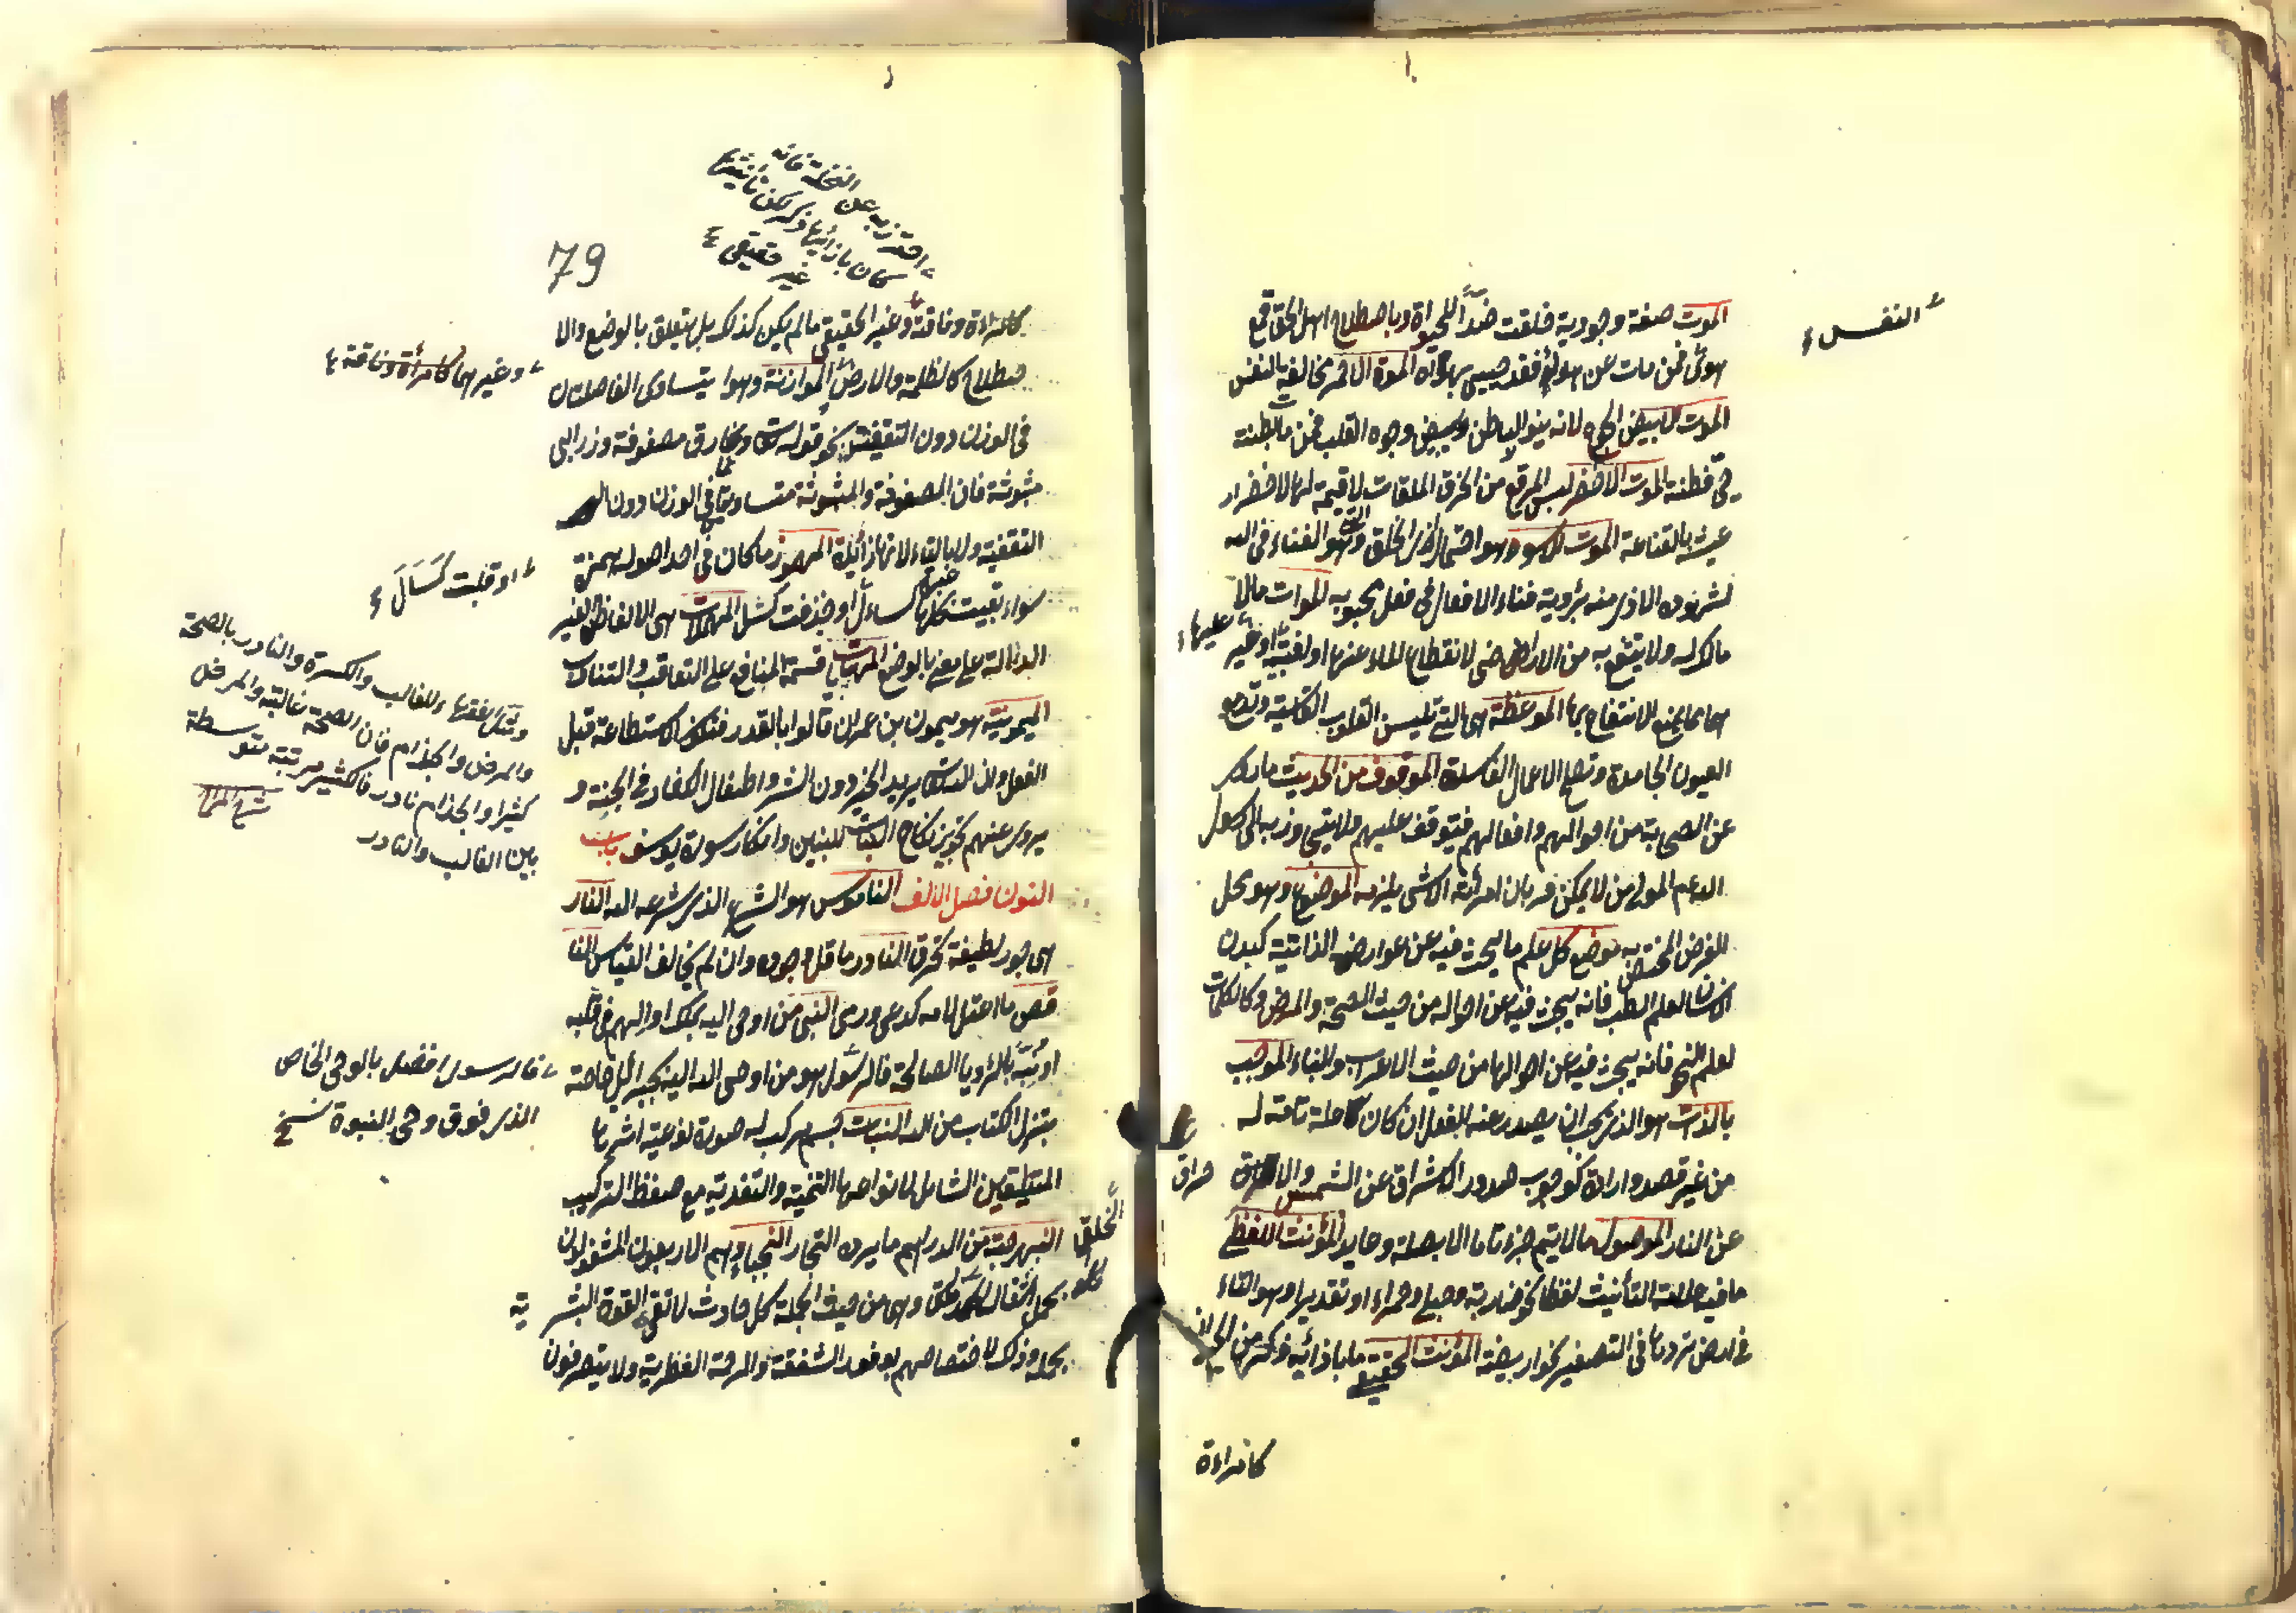 الموت صفة وجودية خلقت ضدا للحيوة وباصطلاح اهل الحق قمع
هوى فمن مات عن هواه فقد حيى بهداه الموت الاحمر مخالفة النفس
الموت الابيض الجوع لانه ينور الباطن ويبيض وجوه القلب فمن ماتت بطنته
حى فطنته الموت الاخضر لبس المرقع من الخرق الملقات لا قيمة لها لاخضرار
عيشه بالقناعة الموت الاسود هو احتمال اذى الخلق وهو الفناء فى الله
لشهوده الاذى منه برؤية فناء الافعال فى فعل محبوبه الموات مالا
مالك له ولا ينتفع به من الاراضى لانقطاع الماء عنها او لغلبته او غير
هما مما يمنع الانتفاع بها الموعظة هى التى تلين القلوب القاسية وتدمع
العيون الجامدة وتصلح الاعمال الفاسدة الموقوف من الحديث ما روى
عن الصحابة من احوالهم وافعالهم فيتوقف عليهم ولا يتجاوز به الى رسول
الله عم المولى من لا يمكن قربان امرأته الا بشئ يلزمه الموضوع هو محل
العرض المختص به موضوع كل علم ما يبحث فيه عن عوارضه الذاتية كبدن
الانسان لعلم الطب فانه يبحث فيه عن احواله من حيث الصحة والمرض وكالكلمات
لعلم النحو فانه يبحث فيه عن احوالها من حيث الاعراب والبناء الموجب
بالذات هو الذى يجب ان يصدر عنه الفعل ان كان علة تامة له
من غير قصد وارادة كوجوب صدور الاشراق عن الشمس والاحراق
عن النار الموصول مالا يتم جزءا تاما الا بصلة وعايد المؤنث اللفظى
ما فيه علامة التأنيث لفظا نحو ضاربة وحبلى وحمراء او تقديرا وهو التاء
فى ارض تردها فى التصغير نحو اريضة المؤنث الحقيقى ما بازائه ذكر من الحيوان
كامراءة
النفس
عليها
حراق
79
احترز به عن النخلة فانه
كان بازائها ذكر لكن تأنيثها
غير حقيقى
كامراءة وناقة وغير الحقيقى مالم يكن كذلك بل يتعلق بالوضع والا
صطلاح كالظلمة والارض الموازنة وهو ان يتساوى الفاصلتان
فى الوزن دون التقفية نحو قوله تعالى ونمارق مصفوفة وزرابى
مبثوثة فان المصفوفة والمبثوثة متساويتان فى الوزن دون
التقفية ولا بالتاء لانها زائدة المهموز ما كان فى احد اصوله همزة
سواء بقيت بحالها كسأل او حذفت كسل المهملات هى الالفاظ الغير
الدالة على معنى بالوضع المهاياة قسمة المنافع على التعاقب والتناوب
الميمونية هو ميمون بن عمران قالوا بالقدر فتكون الاستطاعة قبل
الفعل وان الله تعالى يريد الخير دون الشر واطفال الكفار فى الجنة و
يروى عنهم تجويز نكاح البنات للبنين وانكار سورة يوسف باب
النون فصل الالف الناموس هو الشرع الذى شرعه الله النار
هى جوهر لطيفة تحرق النادر ما قل وجوده وان لم يخالف القياس النا
قص ما اعتل لامه كدعى ورمى النبى من اوحى اليه بملك او الهم فى قلبه
او نبه بالرؤيا الصالحة فالرسول هو من اوحى الله اليه بجبرائيل خاصة
بتنزيل الكتاب من الله النبات جسم مركب له صورة نوعية اثرها
المتيقن الشامل لانواعها التنمية والتغذية مع حفظ التركيب
النبهرجة من الدراهم ما يرده التجار النجباء هم الاربعون المشغولون
بحمل اثقال الخلق وهى من حيث الجملة كل حادث لا تفى القوة البشرية
بحمله وذلك لاختصاصهم بوفور الشفقة والرحمة الفطرية ولا يتصرفون
وغيرهما كامرأة وناقة
او قلبت كسال
ومثل بعضهم للغالب والكثير والنادر بالصحة
والمرض والجذام فان الصحة غالبة والمرض
كثير والجذام نادر فالكثير مرتبة متوسطة
بين الغالب والنادر
فالرسول افضل بالوحى الخاص
الذى فوق وحى النبوة نسخ
الخلق